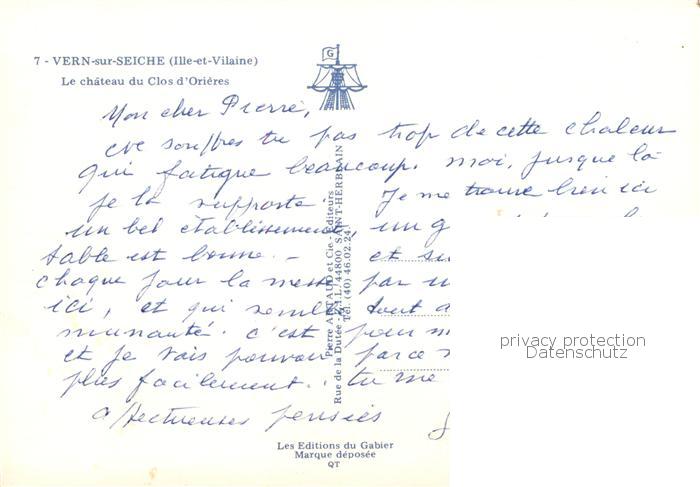 7 - VERN-sur-SEICHE (Ille-et-Vilaine)
Le château du Clos d'Orières
G
Mon cher Pierre,
ne souffres tu pas trop de cette chaleur
qui fatigue beaucoup. Moi, jusque là
je la supporte. Je me trouve bien ici
un bel établissement, un g
table est bonne. - et su
chaque jour la messe par u
ici, et qui semble tout a
munauté. c'est pour m
et je vais pouvoir parce
plus facilement. tu me
affectueuses pensées
Pierre ARTAUD et Cie - Editeurs
Rue de la Dutée - Z.I.L. 44800 SAINT-HERBLAIN
Tél. (40) 46.02.24
privacy protection
Datenschutz
Les Editions du Gabier
Marque déposée
QT